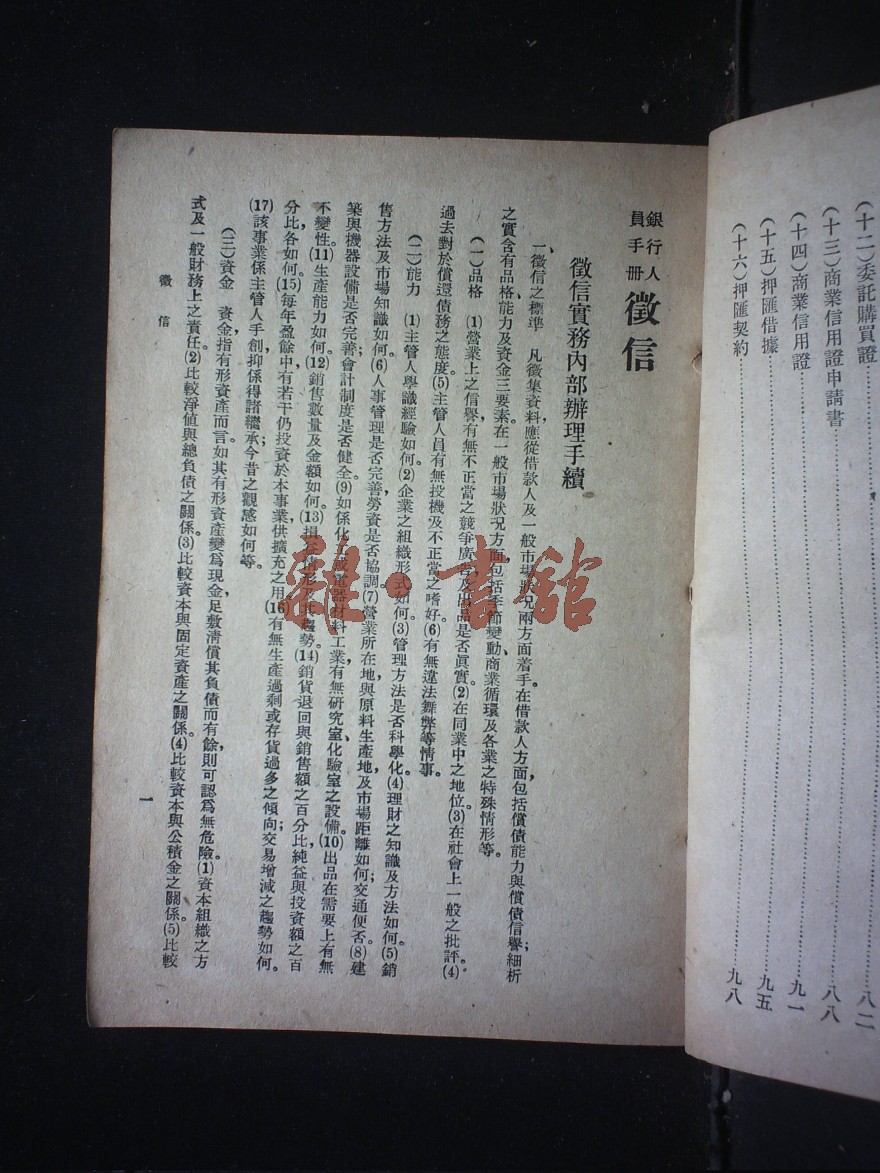 (十二)委託購買證………八二
(十三)商業信用證申請書………八八
(十四)商業信用證………九一
(十五)押匯借據………九五
(十六)押匯契約………九八
銀行人
員手册
徵信
徵信實務內部辦理手續
一、徵信之標準 凡徵集資料應從借款人及一般市場狀況兩方面着手。在借款人方面,包括償債能力與償債信譽;細析
之實含有品格、能力及資金三要素。在一般市場狀況方面,包括季節變動、商業循環及各業之特殊情形等。
(一)品格 (1)營業上之信譽有無不正當之競爭,廣告及出品是否眞實。(2)在同業中之地位。(3)在社會上一般之批評。(4)
過去對於償還債務之態度。(5)主管人員有無投機及不正當之嗜好。(6)有無違法舞弊等情事。
(二)能力 (1)主管人學識經驗如何。(2)企業之組織形式如何。(3)管理方法是否科學化。(4)理財之知識及方法如何。(5)銷
售方法及市場知識如何。(6)人事管理是否完善,勞資是否協調。(7)營業所在地與原料生產地及市場距離如何;交通便否。(8)建
築與機器設備是否完善,會計制度是否健全。(9)如係化工或電器材料工業,有無研究室、化驗室之設備。(10)出品在需要上有無
不變性。(11)生產能力如何。(12)銷售數量及金額如何。(13)損益情形及其趨勢。(14)銷貨退回與銷售額之百分比,純益與投資額之百
分比各如何。(15)每年盈餘中有若干仍投資於本事業,供擴充之用。(16)有無生產過剩或存貨過多之傾向;交易增減之趨勢如何。
(17)該事業係主管人手創,抑係得諸繼承,今昔之觀感如何等。
(三)資金 資金指有形資產而言。如其有形資產變爲現金,足敷清償其負債而有餘,則可認爲無危險。(1)資本組織之方
式及一般財務上之責任。(2)比較淨值與總負債之關係。(3)比較資本與固定資產之關係。(4)比較資本與公積金之關係。(5)比較
徵信
一
雜·書館